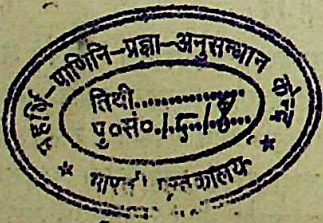 महर्षि-पाणिनि-प्रज्ञा-अनुसन्धान केन्द्र
तिथी..............
पु०सं०